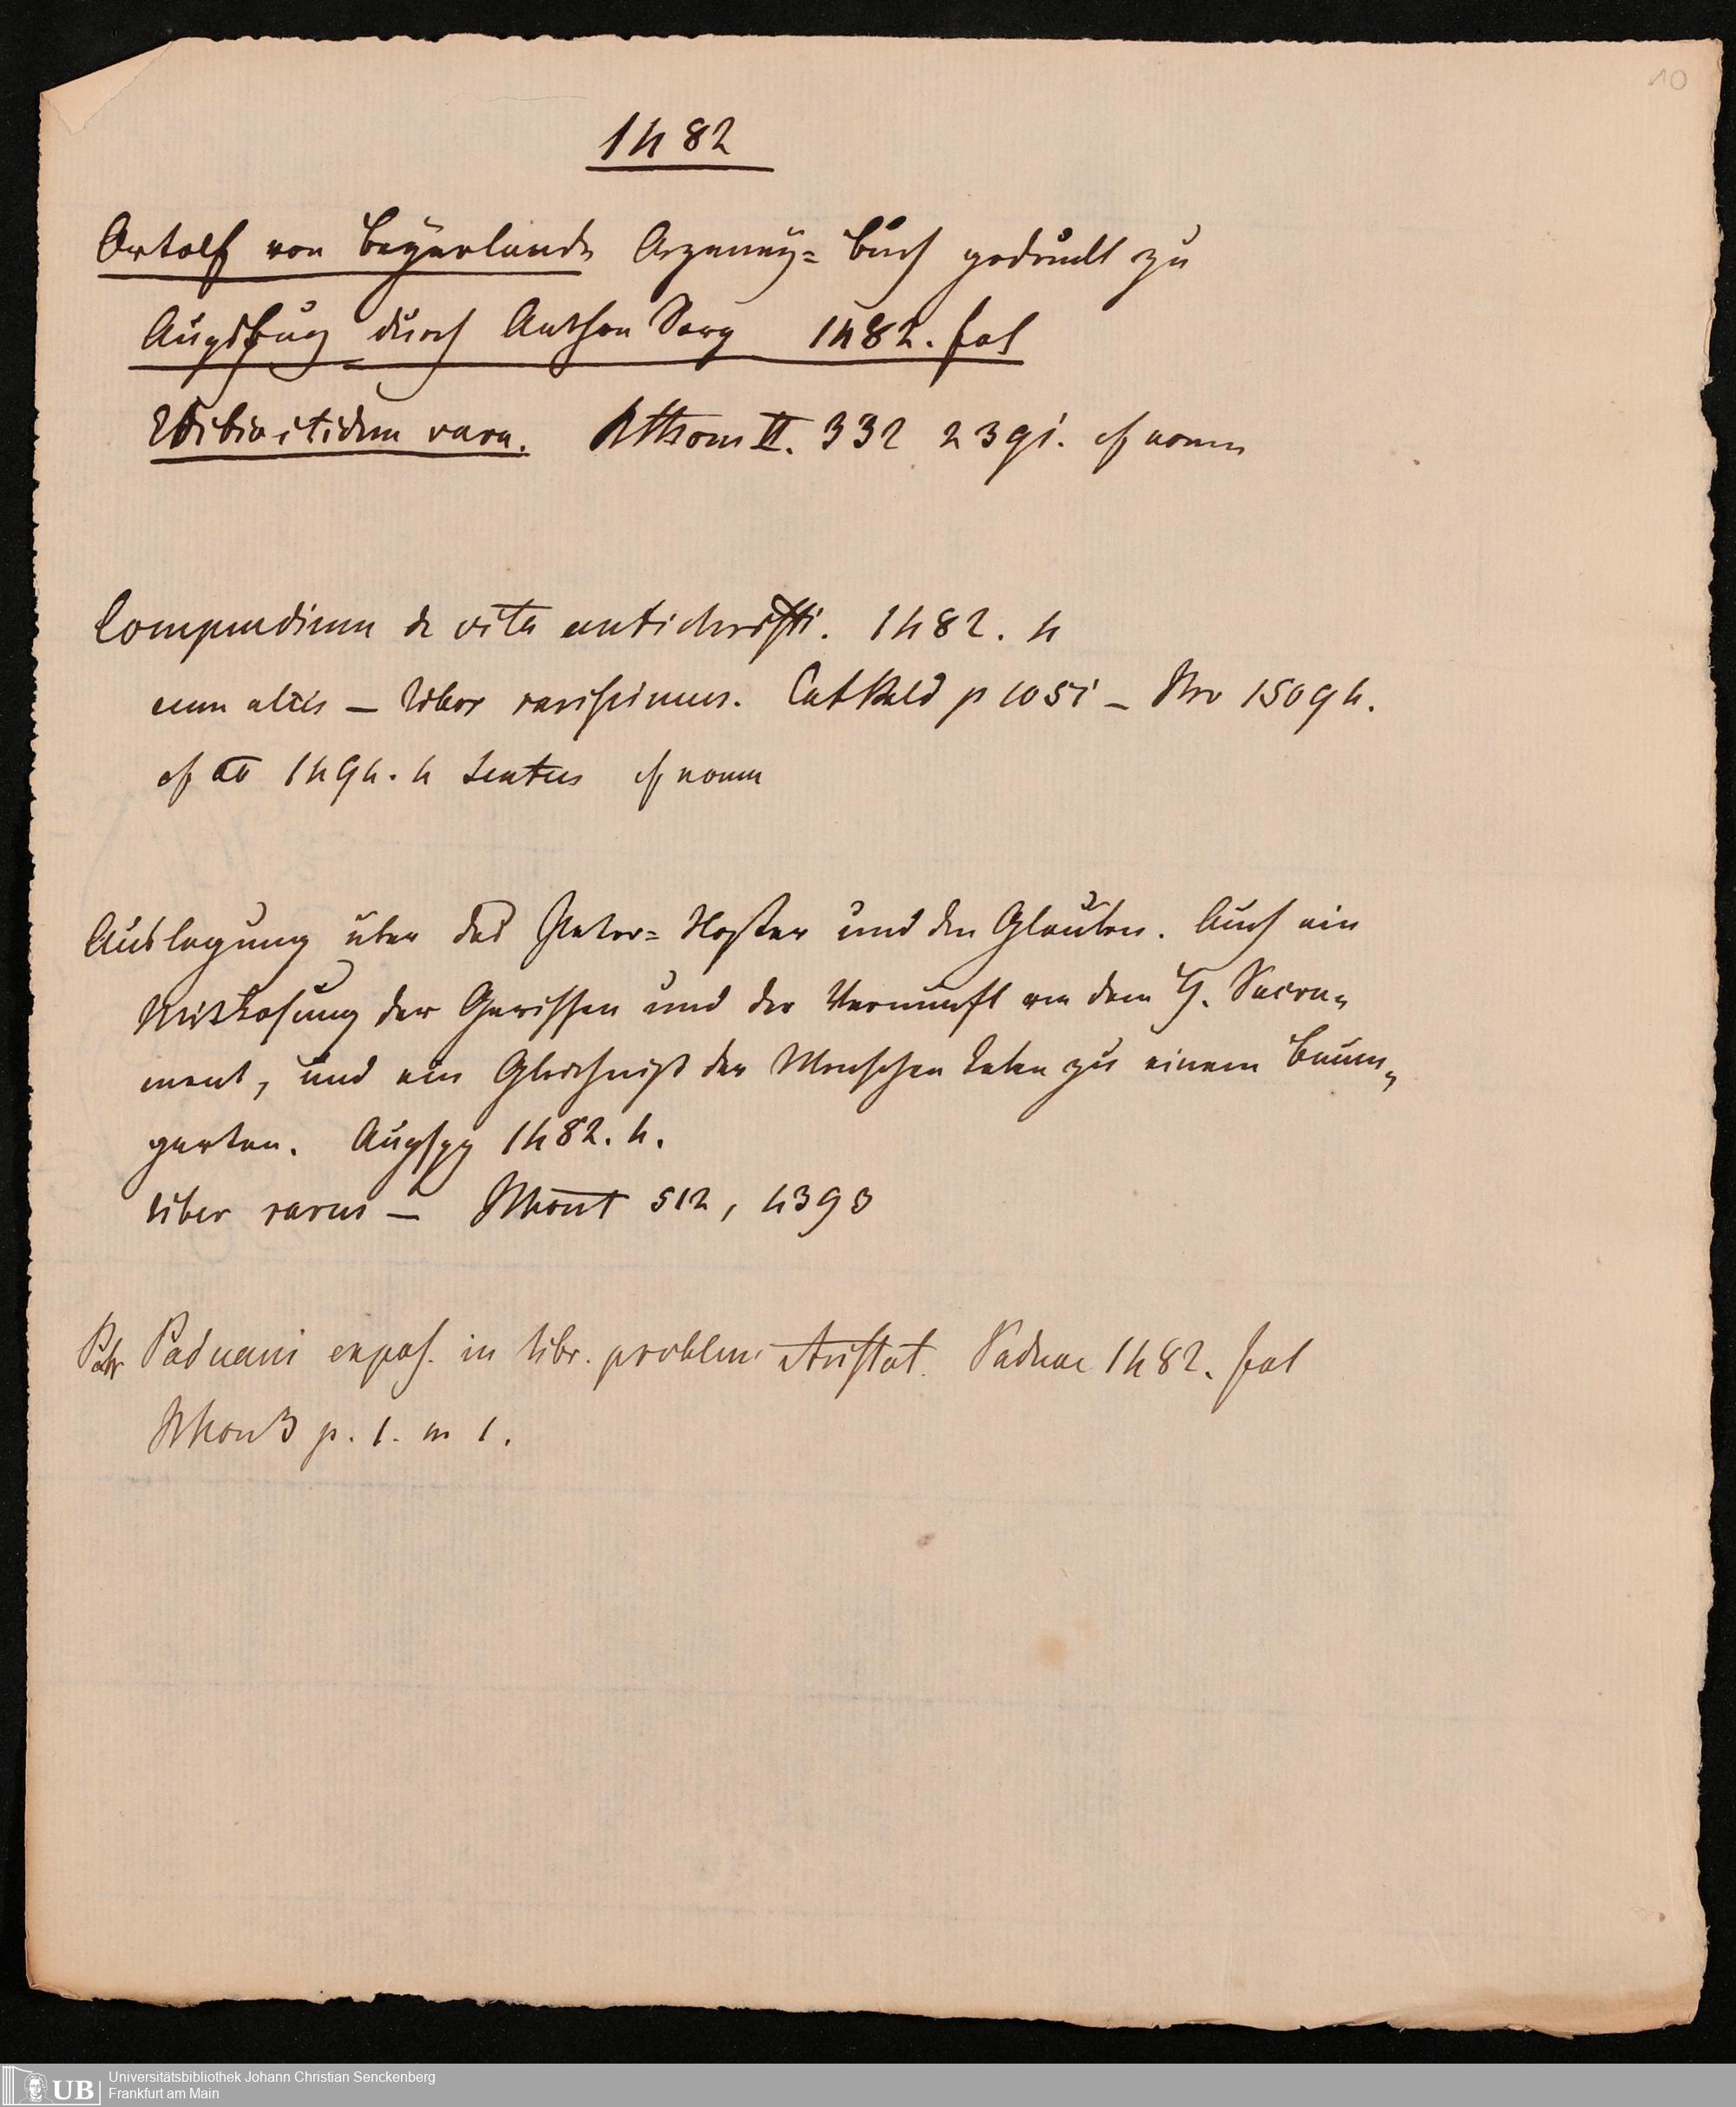 10
1482
Ortolf von Beyerlande Arzeney= Buch gedruckt zu
Augsburg durch Anthon Sorg 1482. fol
Editio itidem rara. Bthom II. 332 2391. cf nomen
Compendium de vita antichristi. 1482. 4
cum aliis — liber rarissimus. Cat p 1051 — Nro 15094.
cf 1494. 4 cf nomen
Auslegung über das Pater= Noster und den Glauben. Auch ein
der Gewissen und der Vernunft von dem H. Sacra=
ment, und ein Gleichniß der Menschen Leben zu einem Baum=
garten. Augspg 1482. 4.
liber rarus — 512, 4393
Petr Paduani expos. in libr. problem Aristot. Paduae 1482. fol
p. 1. n 1.
UB Universitätsbibliothek Johann Christian Senckenberg
Frankfurt am Main